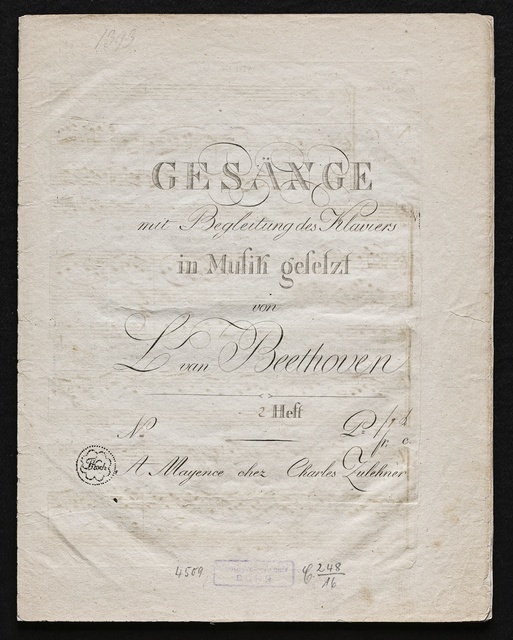 GESÄNGE
mit Begleitung des Klaviers
in Muſik geſetzt
von
L. van Beethoven
2 Heft
N.º Pr. fr. c.
A Mayence chez Charles Zulehner
4509
C. 248/16